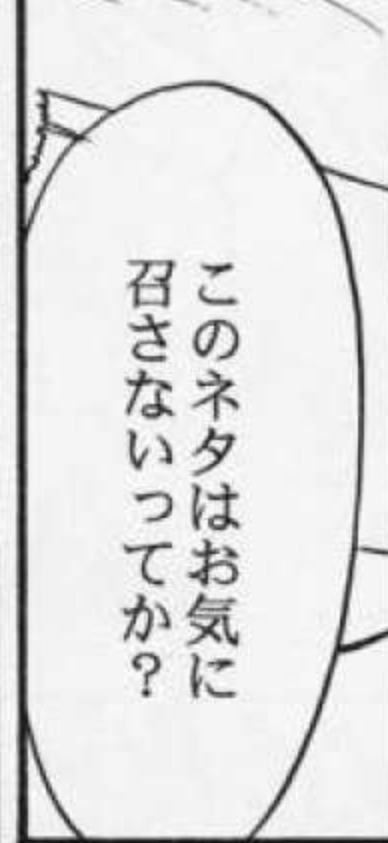 このネタはお気に
召さないってか？